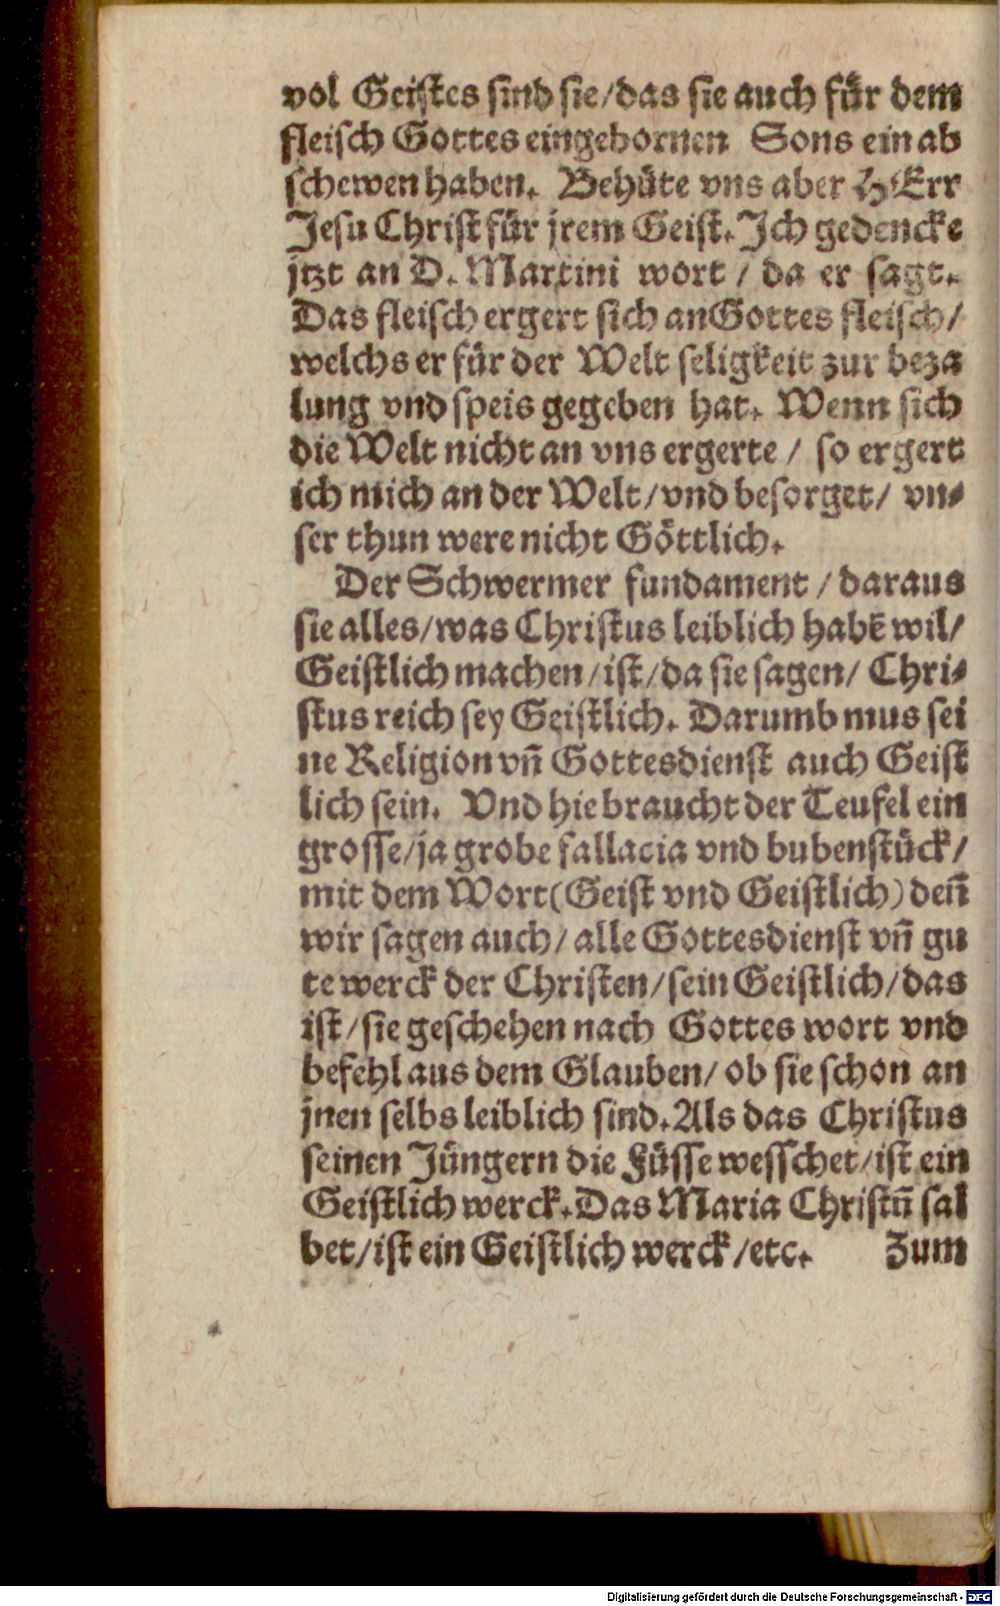 vol Geistes sind sie/das sie auch für dem
fleisch Gottes eingebornen Sons ein ab
schewen haben. Behüte vns aber HErr
Jesu Christ für jrem Geist. Ich gedencke
jtzt an D. Martini wort / da er sagt.
Das fleisch ergert sich an Gottes fleisch/
welchs er für der Welt seligkeit zur beza
lung vnd speis gegeben hat. Wenn sich
die Welt nicht an vns ergerte / so ergert
ich mich an der Welt/vnd besorget/ vn⸗
ser thun were nicht Göttlich.
Der Schwermer fundament / daraus
sie alles/was Christus leiblich habẽ wil/
Geistlich machen/ist/da sie sagen/ Chri⸗
stus reich sey Geistlich. Darumb mus sei
ne Religion vñ Gottesdienst auch Geist
lich sein. Vnd hie braucht der Teufel ein
grosse/ja grobe fallacia vnd bubenstück/
mit dem Wort(Geist vnd Geistlich) deñ
wir sagen auch/ alle Gottesdienst vñ gu
te werck der Christen/sein Geistlich/das
ist/sie geschehen nach Gottes wort vnd
befehl aus dem Glauben/ ob sie schon an
jnen selbs leiblich sind. Als das Christus
seinen Jüngern die Füsse wesschet/ist ein
Geistlich werck. Das Maria Christũ sal
bet/ist ein Geistlich werck/etc. Zum
Digitalisierung gefördert durch die Deutsche Forschungsgemeinschaft - DFG